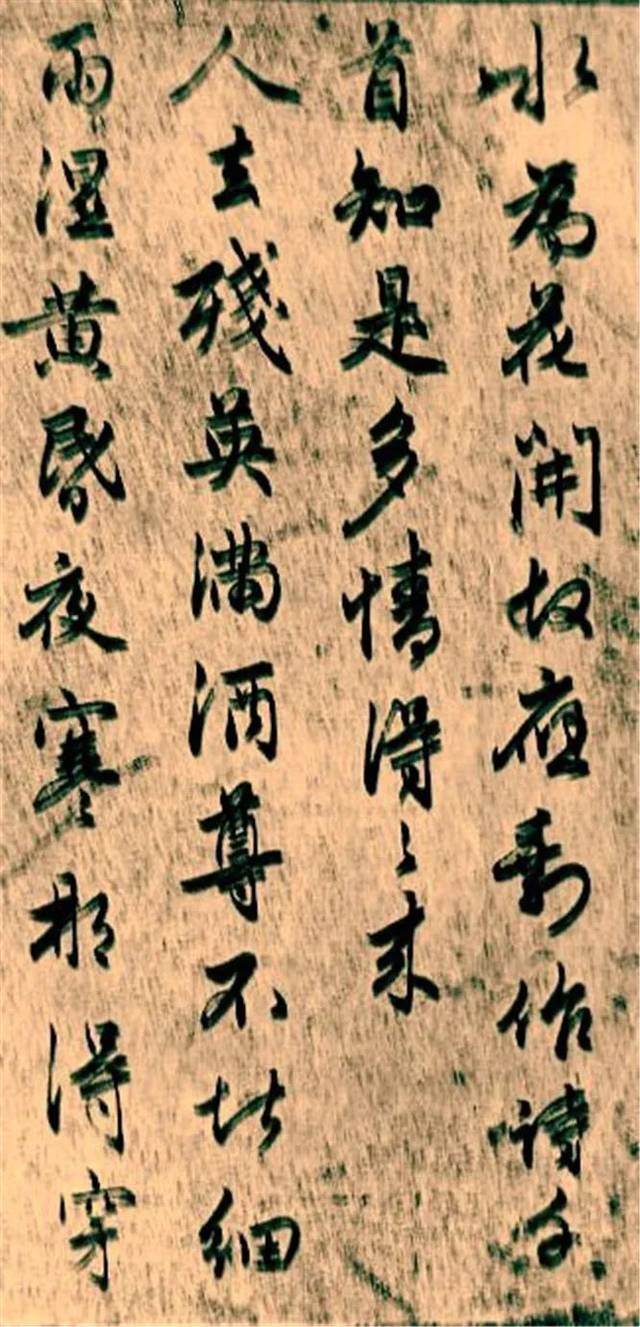 水為花開故應剩作詩千
首知是多情得〻来
人去殘英滿酒尊不堪細
雨溼黄昏夜寒那得穿